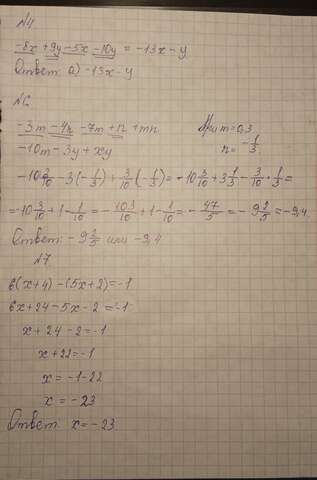 №4
-8x+9y-5x-10y=-13x-y
Ответ: а) -13x-y
№6
-3m-4n-7m+n+mn При m=0,3
-10m-3y+xy n=-1/3
-10 3/10-3(-1/3)+3/10(-1/3)=-10 3/10+3 1/3-3/10·1/3=
=-10 3/10+1-1/10=-103/10+1-1/10=-47/5=-9 2/5=-9,4.
Ответ: -9 2/5 или -9,4
№7
6(x+4)-(5x+2)=-1
6x+24-5x-2=-1
x+24-2=-1
x+22=-1
x=-1-22
x=-23
Ответ: x=-23